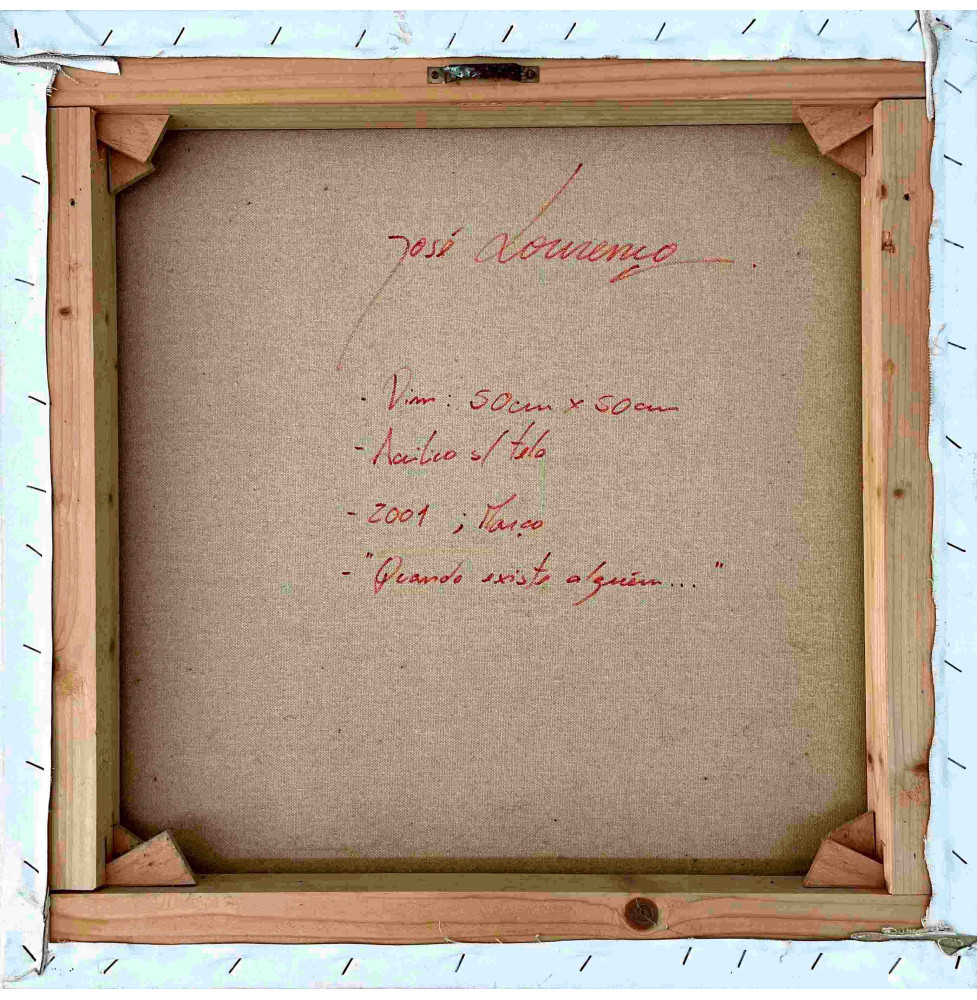 José Lourenço
- Dim: 50cm x 50cm
- Acrílico s/ tela
- 2001 ; Março
- "Quando existe alguém... "